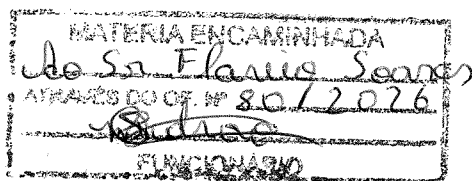 MATÉRIA ENCAMINHADA
Ao Sr Flavio Soares
ATRAVÉS DO OF. Nº 80/2026
FUNCIONÁRIO